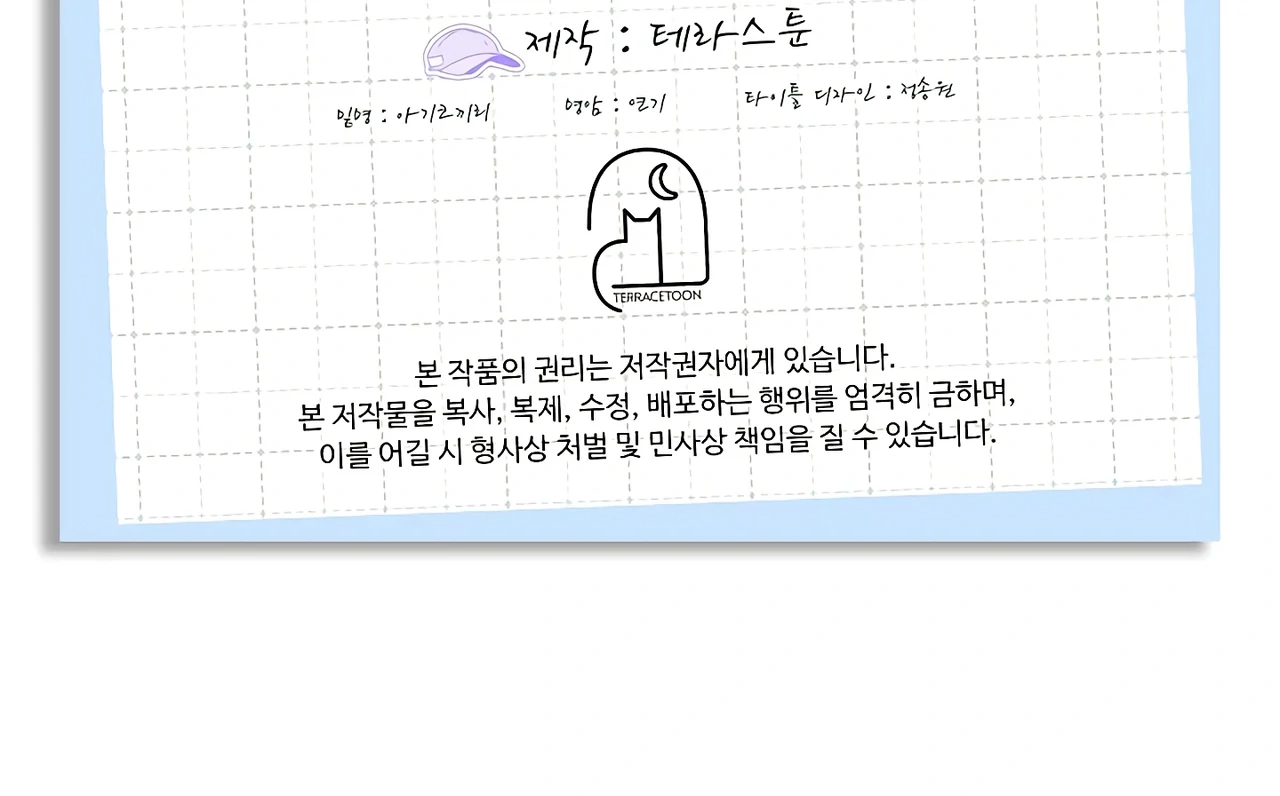 제작 : 테라스툰
밑명 : 아기코끼리 명암 : 연기 타이틀 디자인 : 정송원
TERRACETOON
본 작품의 권리는 저작권자에게 있습니다.
본 저작물을 복사, 복제, 수정, 배포하는 행위를 엄격히 금하며,
이를 어길 시 형사상 처벌 및 민사상 책임을 질 수 있습니다.